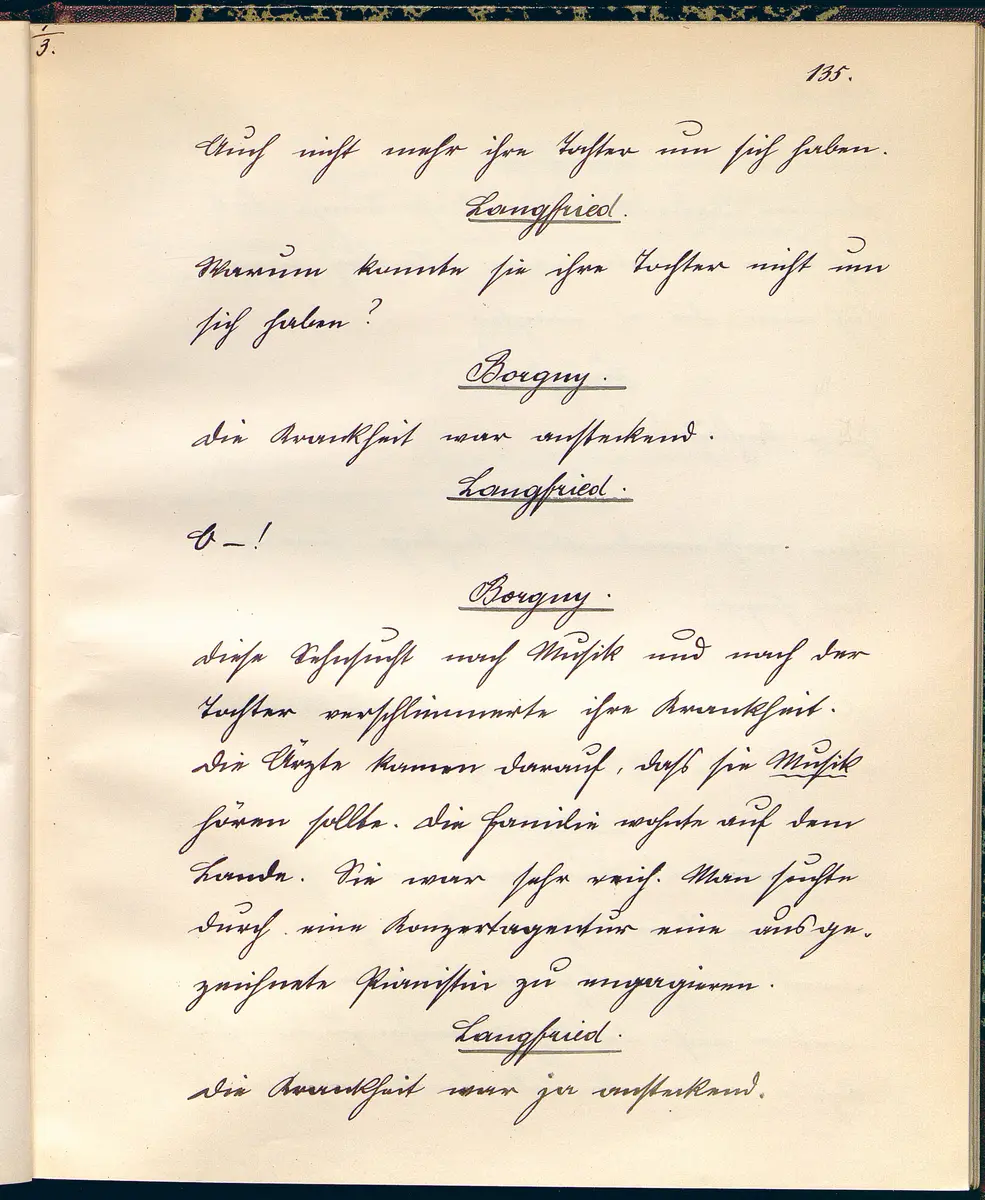 3.
135.
Auch nicht mehr ihre Tochter um sich haben.
Langfried.
Warum konnte sie ihre Tochter nicht um
sich haben?
Borgny.
Die Krankheit war ansteckend.
Langfried.
O–!
Borgny.
Diese Sehnsucht nach Musik und nach der
Tochter verschlimmerte ihre Krankheit.
Die Ärzte kamen darauf, dass sie Musik
hören sollte. Die Familie wohnte auf dem
Lande. Sie war sehr reich. Man suchte
durch eine Konzertagentur eine ausge-
zeichnete Pianistin zu engagieren.
Langfried.
Die Krankheit war ja ansteckend.